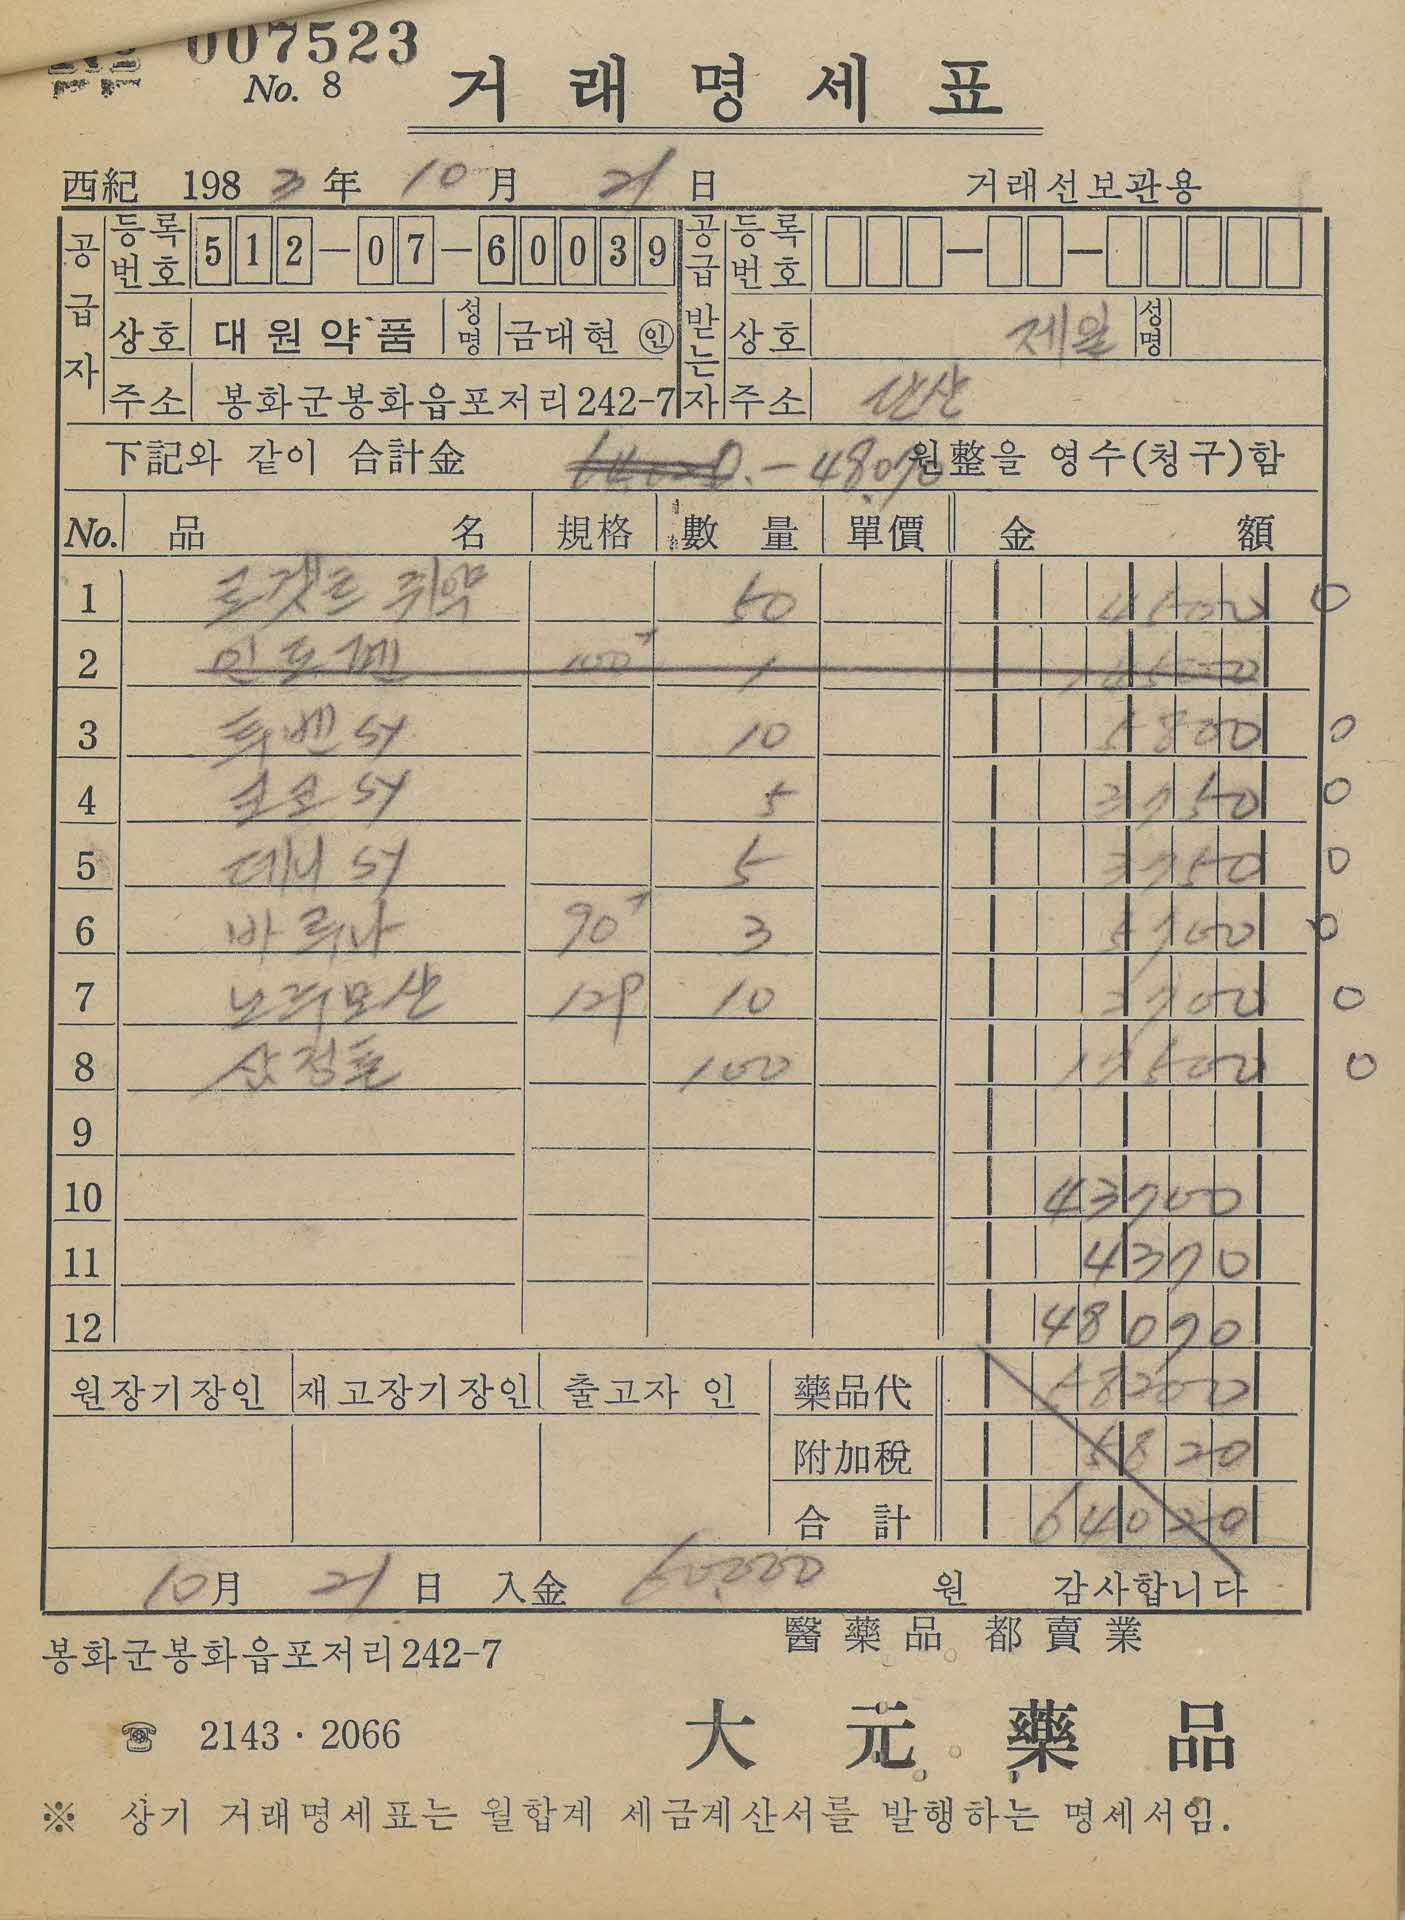 007523
No. 8
거래명세표
西紀 1983年 10月 21日 거래선보관용
공급자 등록번호 512-07-60039 공급받는자 등록번호
상호 대원약품 성명 금대현 ㊞ 상호 제일 성명
주소 봉화군봉화읍포저리242-7 주소
下記와 같이 合計金 64.020.- 48.070 원整을 영수(청구)함
No. 品名 規格 數量 單價 金額
1 로겟트 쥐약 50 4500 0
2 인도멘 100T 1 14500
3 투벤 SY 10 5800 0
4 코코 SY 5 3750 0
5 데니 SY 5 3750 0
6 바루나 90T 3 5700 0
7 노루모산 12P 10 2700 0
8 삼정톤 100 17500 0
9
10 43700
11 4370
12 48070
원장기장인 재고장기장인 출고자 인 藥品代 58200
附加稅 5820
合計 64020
10月 21日 入金 50.000 원 감사합니다
봉화군봉화읍포저리242-7 醫藥品 都賣業
☎ 2143·2066 大元藥品
※ 상기 거래명세표는 월합계 세금계산서를 발행하는 명세서임.